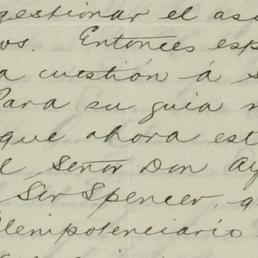 gestionar el as
os. Entonces esp
a cuestión á s
Para su guia
que ahora est
l Señor Don Ay
Sir Spencer,
lenipotenciario